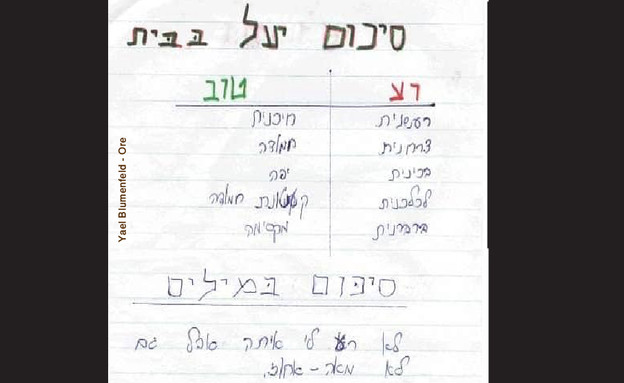 סיכום יעל בבית
רע טוב
רעשנית חיכנית
צרחנית חמודה
בכינית יפה
לכלכנית קטנטונת חמודה
ברברנית מקסימה
סיכום במילים
לא רע לי איתה אבל גם
לא מאה-אחוז.
Yael Blumenfeld - Ore